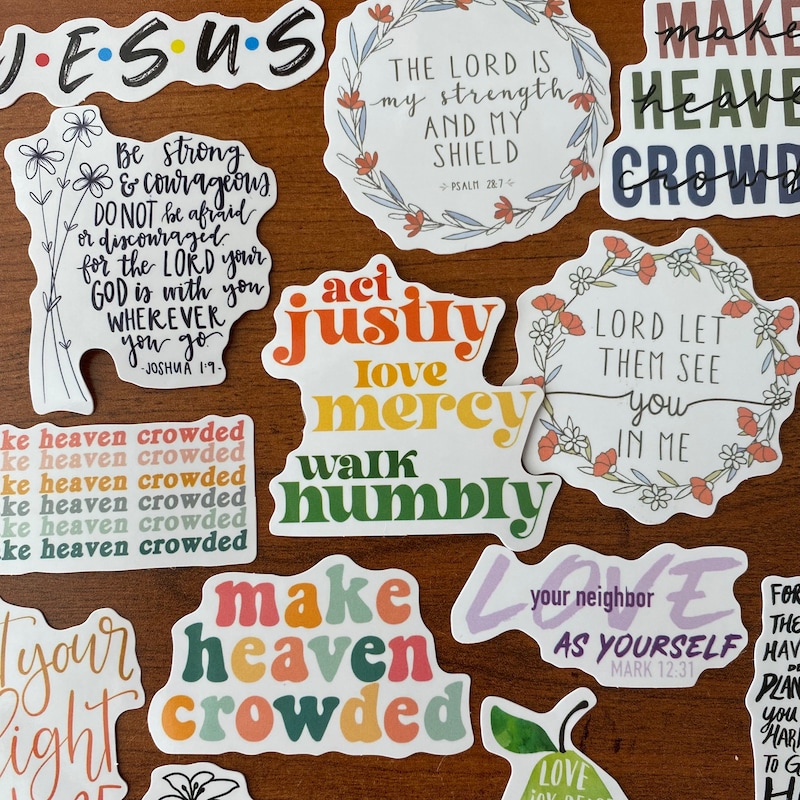 JESUS
THE LORD IS
my strength
AND MY
SHIELD
PSALM 28:7
MAKE
heave
HEAVE
crowd
CROWD
Be strong
& courageous
DO NOT be afraid
or discouraged
for the LORD your
GOD is with you
WHEREVER
you go
-JOSHUA 1:9-
act
justly
love
mercy
walk
humbly
LORD LET
THEM SEE
you
IN ME
ke heaven crowded
ke heaven crowded
ke heaven crowded
ke heaven crowded
ke heaven crowded
ke heaven crowded
make
heaven
crowded
LOVE
your neighbor
AS YOURSELF
MARK 12:31
t your
light
FOR
THE
HAV
PLAN
you
HAR
TO G
LOVE
JOY PEACE